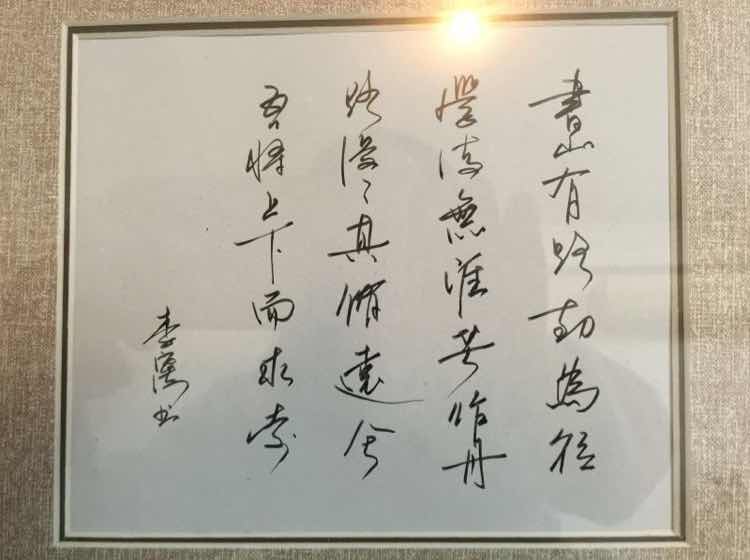 書山有路勤為徑
學海無涯苦作舟
路漫〻其脩遠兮
吾將上下而求索
李书